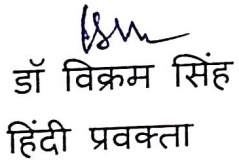 डॉ विक्रम सिंह
हिंदी प्रवक्ता